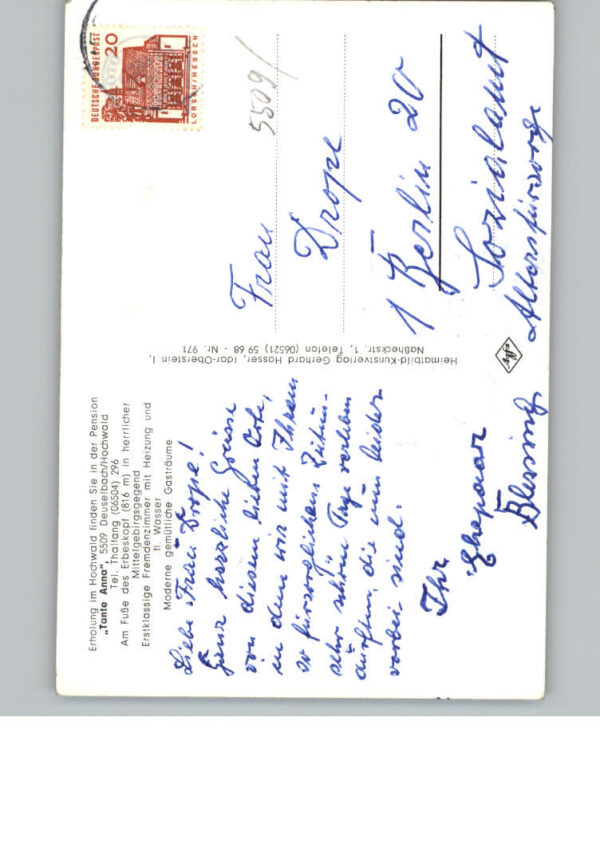 Erholung im Hochwald finden Sie in der Pension
„Tante Anna", 5509 Deuselbach/Hochwald
Tel. Thalfang (06504) 296
Am Fuße des Erbeskopf (816 m) in herrlicher
Mittelgebirgsgegend
Erstklassige Fremdenzimmer mit Heizung und
fl. Wasser
Moderne gemütliche Gasträume
Liebe Frau Drope!
Ganz herzliche Grüsse
von diesem lieben Orte,
in dem wir mit Ihrem
so fürsorglichen
sehr schöne Tage verleben
durften, die nun leider
vorbei sind.
Ihr
Ehepaar
Blessing
Heimatbild-Kunstverlag Gerhard Hosser, Idar-Oberstein I,
Naßheckstr. 1, Telefon (06521) 59 68 - Nr. 971
DEUTSCHE BUNDESPOST
20
LORSCH/HESSEN
5509/
Frau
Drope
1 Berlin 20
Sozialamt
Altersfürsorge